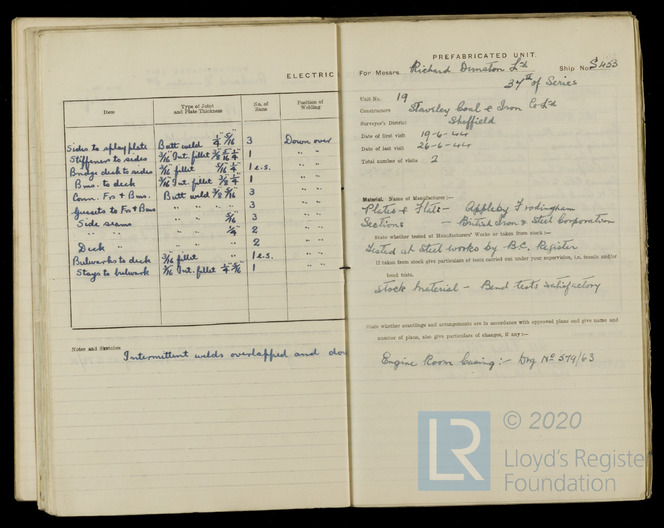 ELECTRIC
Item
Type of Joint and Plate Thickness
No. of Runs
Position of Welding
Sides to splayplate Butt weld 1/4" 5/16" 3 Down over
Stiffeners to sides 3/16" Int. fillet 3/8 5/16 1/4 1 " "
Bridge deck to sides 3/16" fillet 5/16 1/4 1 e.s. " "
Bms. to deck 3/16" Int. fillet 3/8 1/4 1 " "
Conn. Frs & Bms. Butt weld 3/8 5/16 3 " "
Gussets to Frs & Bms " " " " 3 " "
Side seams " " 5/16 3 " "
" " " " 1/4 2 " "
Deck " " " 2 " "
Bulwarks to deck 3/16 fillet " 1 e.s. " "
Stays to bulwark 3/16 Int. fillet 1/4 5/16 1 " "
Notes and Sketches
Intermittent welds overlapped and
PREFABRICATED UNIT.
For Messrs. Richard Dunston Ltd Ship No. S453
37th of Series
Unit No. 19
Constructors Staveley Coal & Iron Co Ltd
Surveyor's District Sheffield
Date of first visit 19-6-44
Date of last visit 26-6-44
Total number of visits 2
Material. Name of Manufacturer :—
Plates & Flats - Appleby Frodingham
Sections - British Iron & Steel Corporation
State whether tested at Manufacturers' Works or taken from stock :—
Tested at Steel works by B.C. Register
If taken from stock give particulars of tests carried out under your supervision, i.e. tensile and/or
bend tests.
Stock Material - Bend tests satisfactory
State whether scantlings and arrangements are in accordance with approved plans and give name and
number of plans, also give particulars of changes, if any :—
Engine Room Casing :- Drg No 579/63
© 2020
LR
Lloyd's Register
Foundation